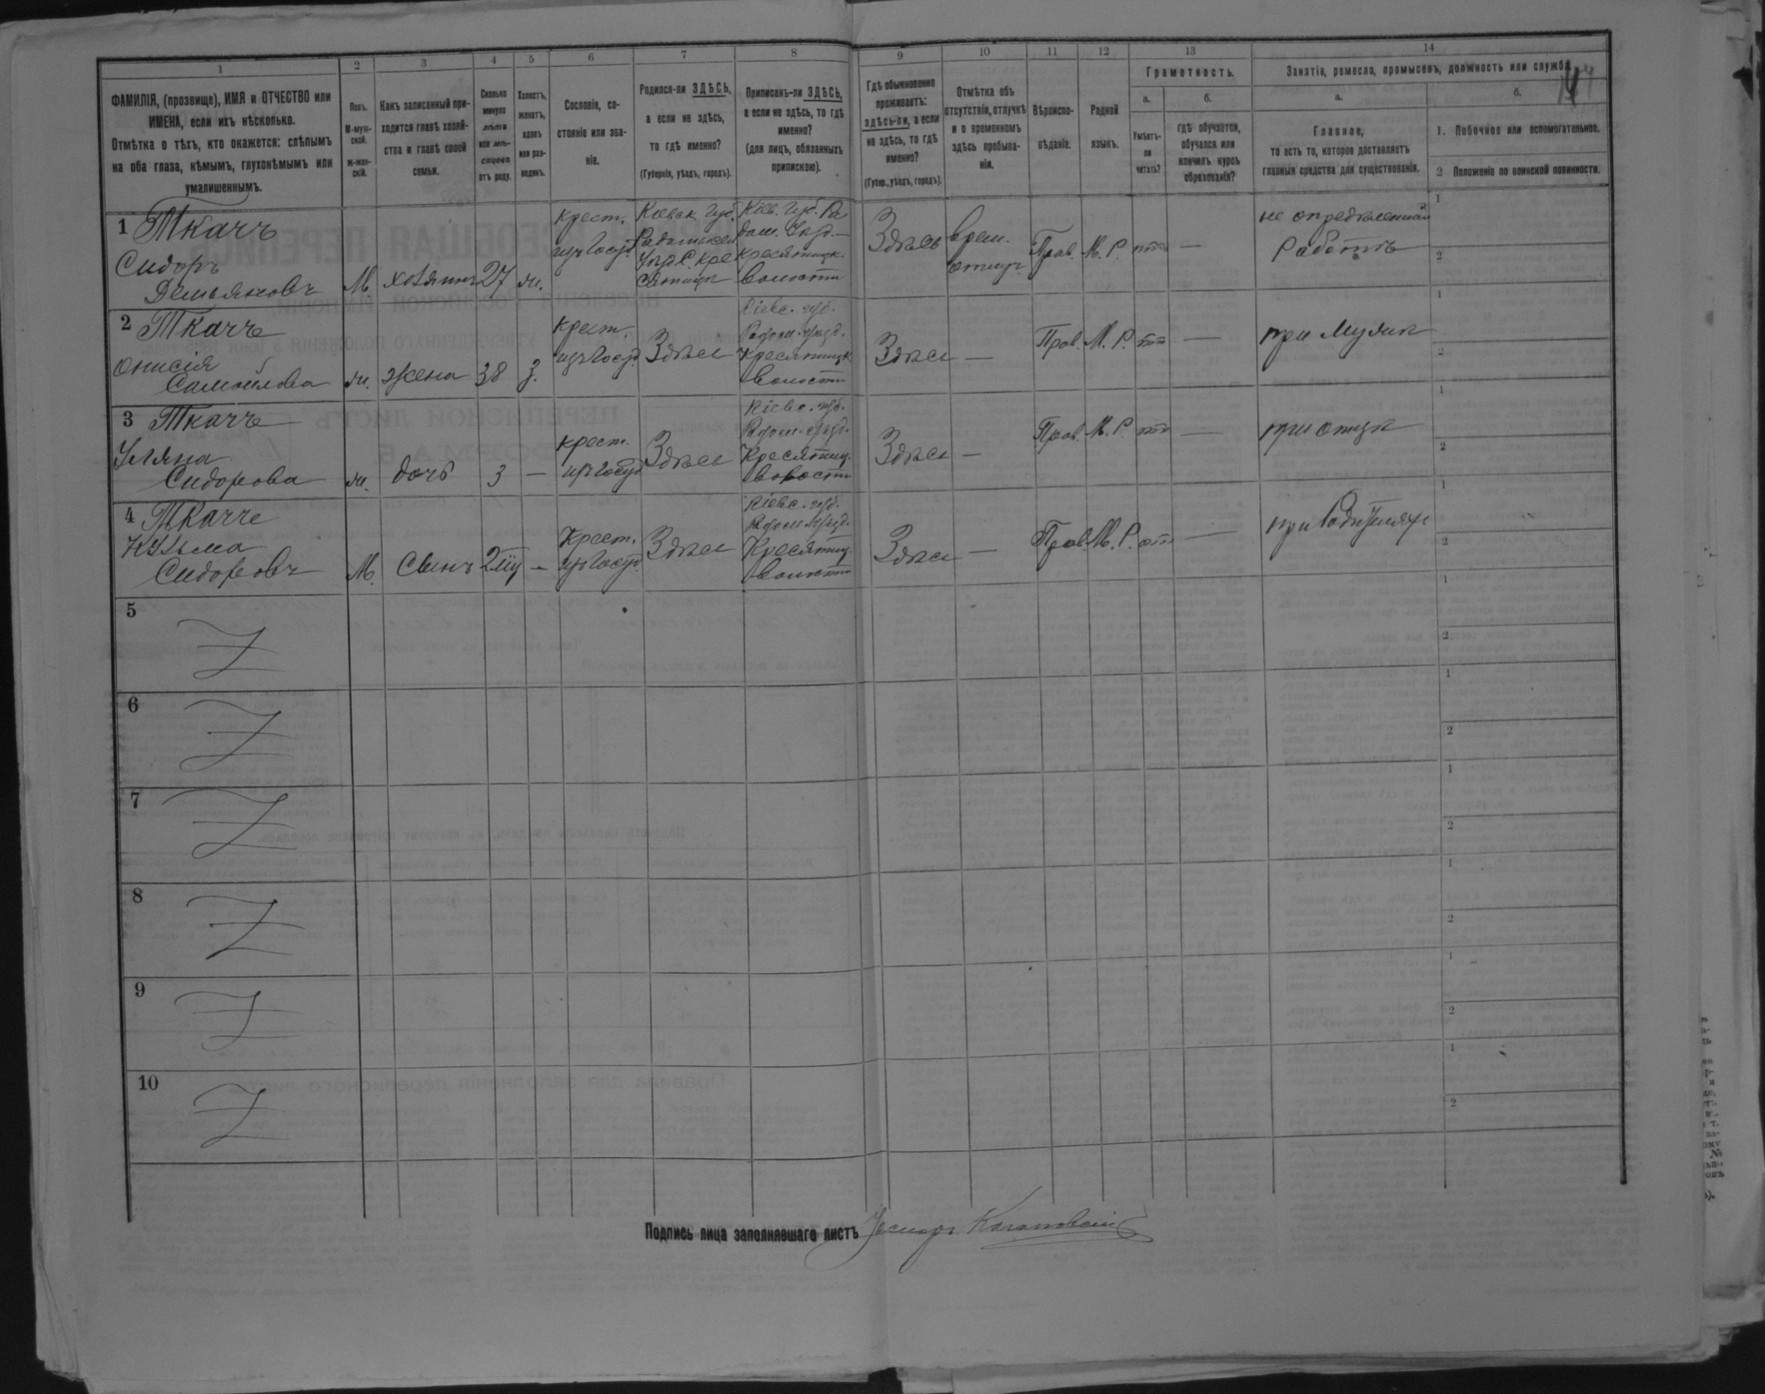 1 2 3 4 5 6 7 8 9 10 11 12 13 14
ФАМИЛІЯ, (прозвище), ИМЯ и ОТЧЕСТВО или
ИМЕНА, если ихъ нѣсколько.
Отмѣтка о тѣхъ, кто окажется: слѣпымъ
на оба глаза, нѣмымъ, глухонѣмымъ или
умалишеннымъ.
Полъ.
М-муж-
ской.
Ж-жен-
скій.
Какъ записанный при-
ходится главѣ хозяй-
ства и главѣ своей
семьи.
Сколько
минуло
лѣтъ
или мѣ-
сяцевъ
отъ роду.
Холостъ,
женатъ,
вдовъ
или раз-
веденъ.
Сословіе, со-
стояніе или зва-
ніе.
Родился-ли ЗДѢСЬ,
а если не здѣсь,
то гдѣ именно?
(Губернія, уѣздъ, городъ).
Приписанъ-ли ЗДѢСЬ,
а если не здѣсь, то гдѣ
именно?
(для лицъ, обязанныхъ
припискою).
Гдѣ обыкновенно
проживаетъ:
здѣсь-ли, а если
не здѣсь, то гдѣ
именно?
(Губер., уѣздъ, городъ).
Отмѣтка объ
отсутствіи, отлучкѣ
и о временномъ
здѣсь пребыва-
ніи.
Вѣроиспо-
вѣданіе.
Родной
языкъ.
Грамотность.
а.
Умѣетъ-
ли
читать?
б.
гдѣ обучается,
обучался или
кончилъ курсъ
образованія?
Занятіе, ремесло, промыселъ, должность или служба.
а.
Главное,
то есть то, которое доставляетъ
главныя средства для существованія.
б.
1. Побочное или вспомогательное.
2 Положеніе по воинской повинности.
1 Ткачъ
Сидоръ
Демьяновъ
М. хозяинъ 27 ж.
крест.
изъ госуд.
Кіевск. губ.
Кіев. губ. Ра
дом. уѣзд.
волости
Здѣсь
врем.
отлуч.
Прав. М. Р. нѣт —
не опредѣленная
работа
1
2
2 Ткачъ
Онисія
Самойлова
ж. жена 38 з.
крест.
изъ госуд.
Здѣсь
Кіевс. губ.
Радом. уѣзд.
Кресятицк
волости
Здѣсь —
Прав. М. Р. нѣт —
при мужи
1
2
3 Ткачъ
Уляна
Сидорова
ж. дочь 3 —
крест.
изъ госуд
Здѣсь
Кіевс. губ.
Радом. уѣзд.
Кресятиц.
волости
Здѣсь —
Прав. М. Р. нѣт —
при отцѣ
1
2
4 Ткачъ
Кузьма
Сидоровъ
М. Сынъ —
Крест.
изъ госуд.
Здѣсь
Кіевс. губ.
Радом. уѣзд.
Кресятиц
волости
Здѣсь —
Прав. М. Р. нѣт —
при родителях
1
2
5
1
2
6
1
2
7
1
2
8
1
2
9
1
2
10
1
2
Подпись лица заполнявшаго листъ